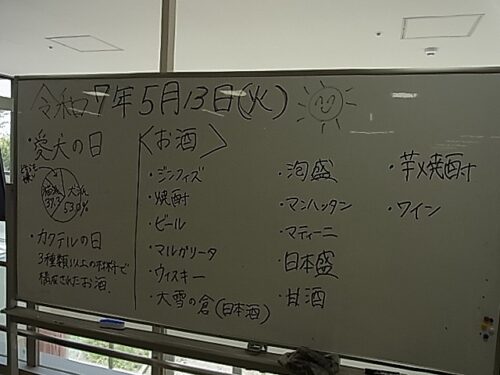 令和7年5月13日(火)
・愛犬の日
犬派
53.0%
37.
・カクテルの日
3種類以上の材料で
構成されたお酒
<お酒>
・ジンフィズ
・焼酎
・ビール
・マルガリータ
・ウィスキー
・大雪の倉(日本酒)
・泡盛
・マンハッタン
・マティーニ
・日本盛
・甘酒
・芋焼酎
・ワイン